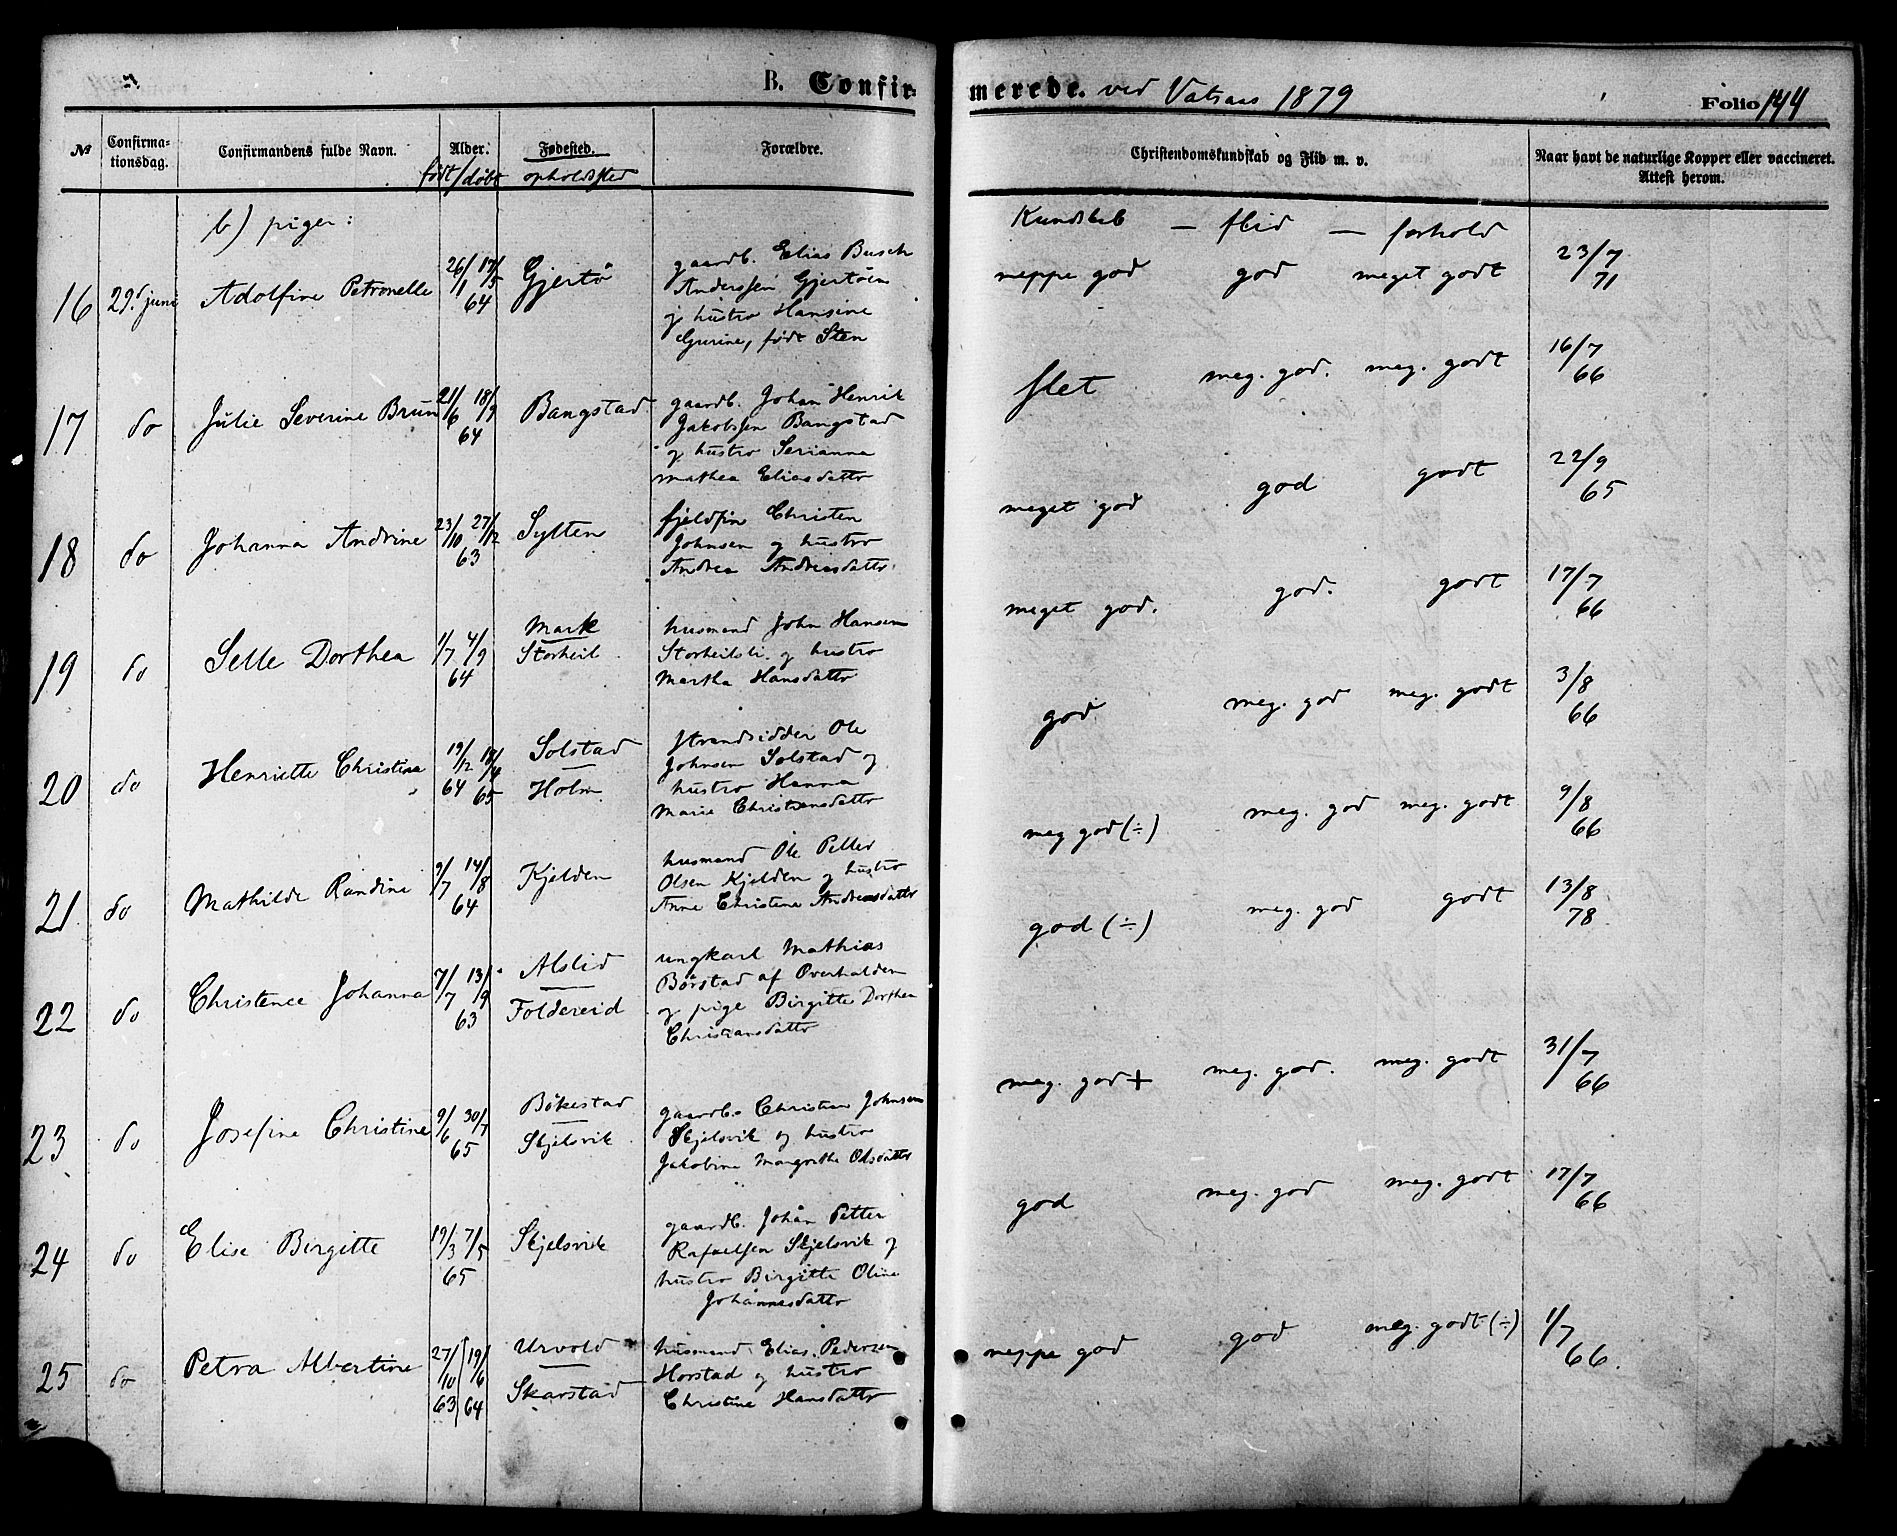 B. Confirmerede. ved Vatsaas 1879
Folio 144
№
Confirmationsdag.
Confirmandens fulde Navn.
Alder. født/døbt
Fødested. opholdssted
Forældre.
Christendomskundskab og Flid m. v.
Naar havt de naturlige Kopper eller vaccineret. Attest herom.
b) piger:
Kundskab — flid — forhold
16 29. juni Adolfine Petronelle 26/1 17/5 64 Gjertö
gaardb. Elias Busch
Anderssen Gjertöen
og hustro Hansine
Gurine, født Sten
neppe god god meget godt 23/7 71
17 do Julie Severine Brun 21/6 18/9 64 Bangstad
gaardb. Johan Henrik
Jakobssen Bangstad
og hustro Serianna
Mathea Eliasdatter
slet meg. god. meg. godt 16/7 66
18 do Johanna Andrine 23/10 27/12 63 Sylten
fjeldfin Christen
Johnsen og hustro
Andrea Andreasdattr.
meget god god godt 22/9 65
19 do Selle Dorthea 1/7 4/9 64 Mark
Storheil.
husmand John Hansen
Storheilsli. og hustro
Martha Hansdattr
meget god. god. godt 17/7 66
20 do Henriette Christine 19/12 64 18/4 65 Solstad
Holm
strandsidder Ole
Johnsen Solstad og
hustro Hanna
Marie Christensdattr
god meg. god meg. godt 3/8 66
21 do Mathilde Randine 9/7 14/8 64 Kjelden
husmand Ole Petter
Olsen Kjelden og hustro
Anne Christine Andreasdattr
meg god (÷) meg. god meg. godt 9/8 66
22 do Christence Johanna 7/7 13/9 63 Alslid
Foldereid
ungkarl Mathias
Börstad af Overhalden
og pige Birgitte Dorthea
Christiansdattr
god (÷) meg. god godt 13/8 78.
23 do Josefine Christine 9/6 30/7 65 Bökestad
Skjelsvik
gaardb. Christian Johnsen
Skjelsvik og hustro
Jakobine Margrethe Olsdattr
meg. god + meg. god. meg. godt 31/7 66
24 do Elise Birgitte 19/3 7/5 65 Skjelsvik
gaardb. Johan Petter
Rafaelsen Skjelsvik og
hustro Birgitte Oline
Johannesdattr
god meg. god meg. godt 17/7 66
25 do Petra Albertine 27/10 63 19/6 64 Urvold
Skarstad
husmand Elias Pedersen
Horstad og hustro
Christine Hansdattr
neppe god god meg. godt (÷) 1/7 66.